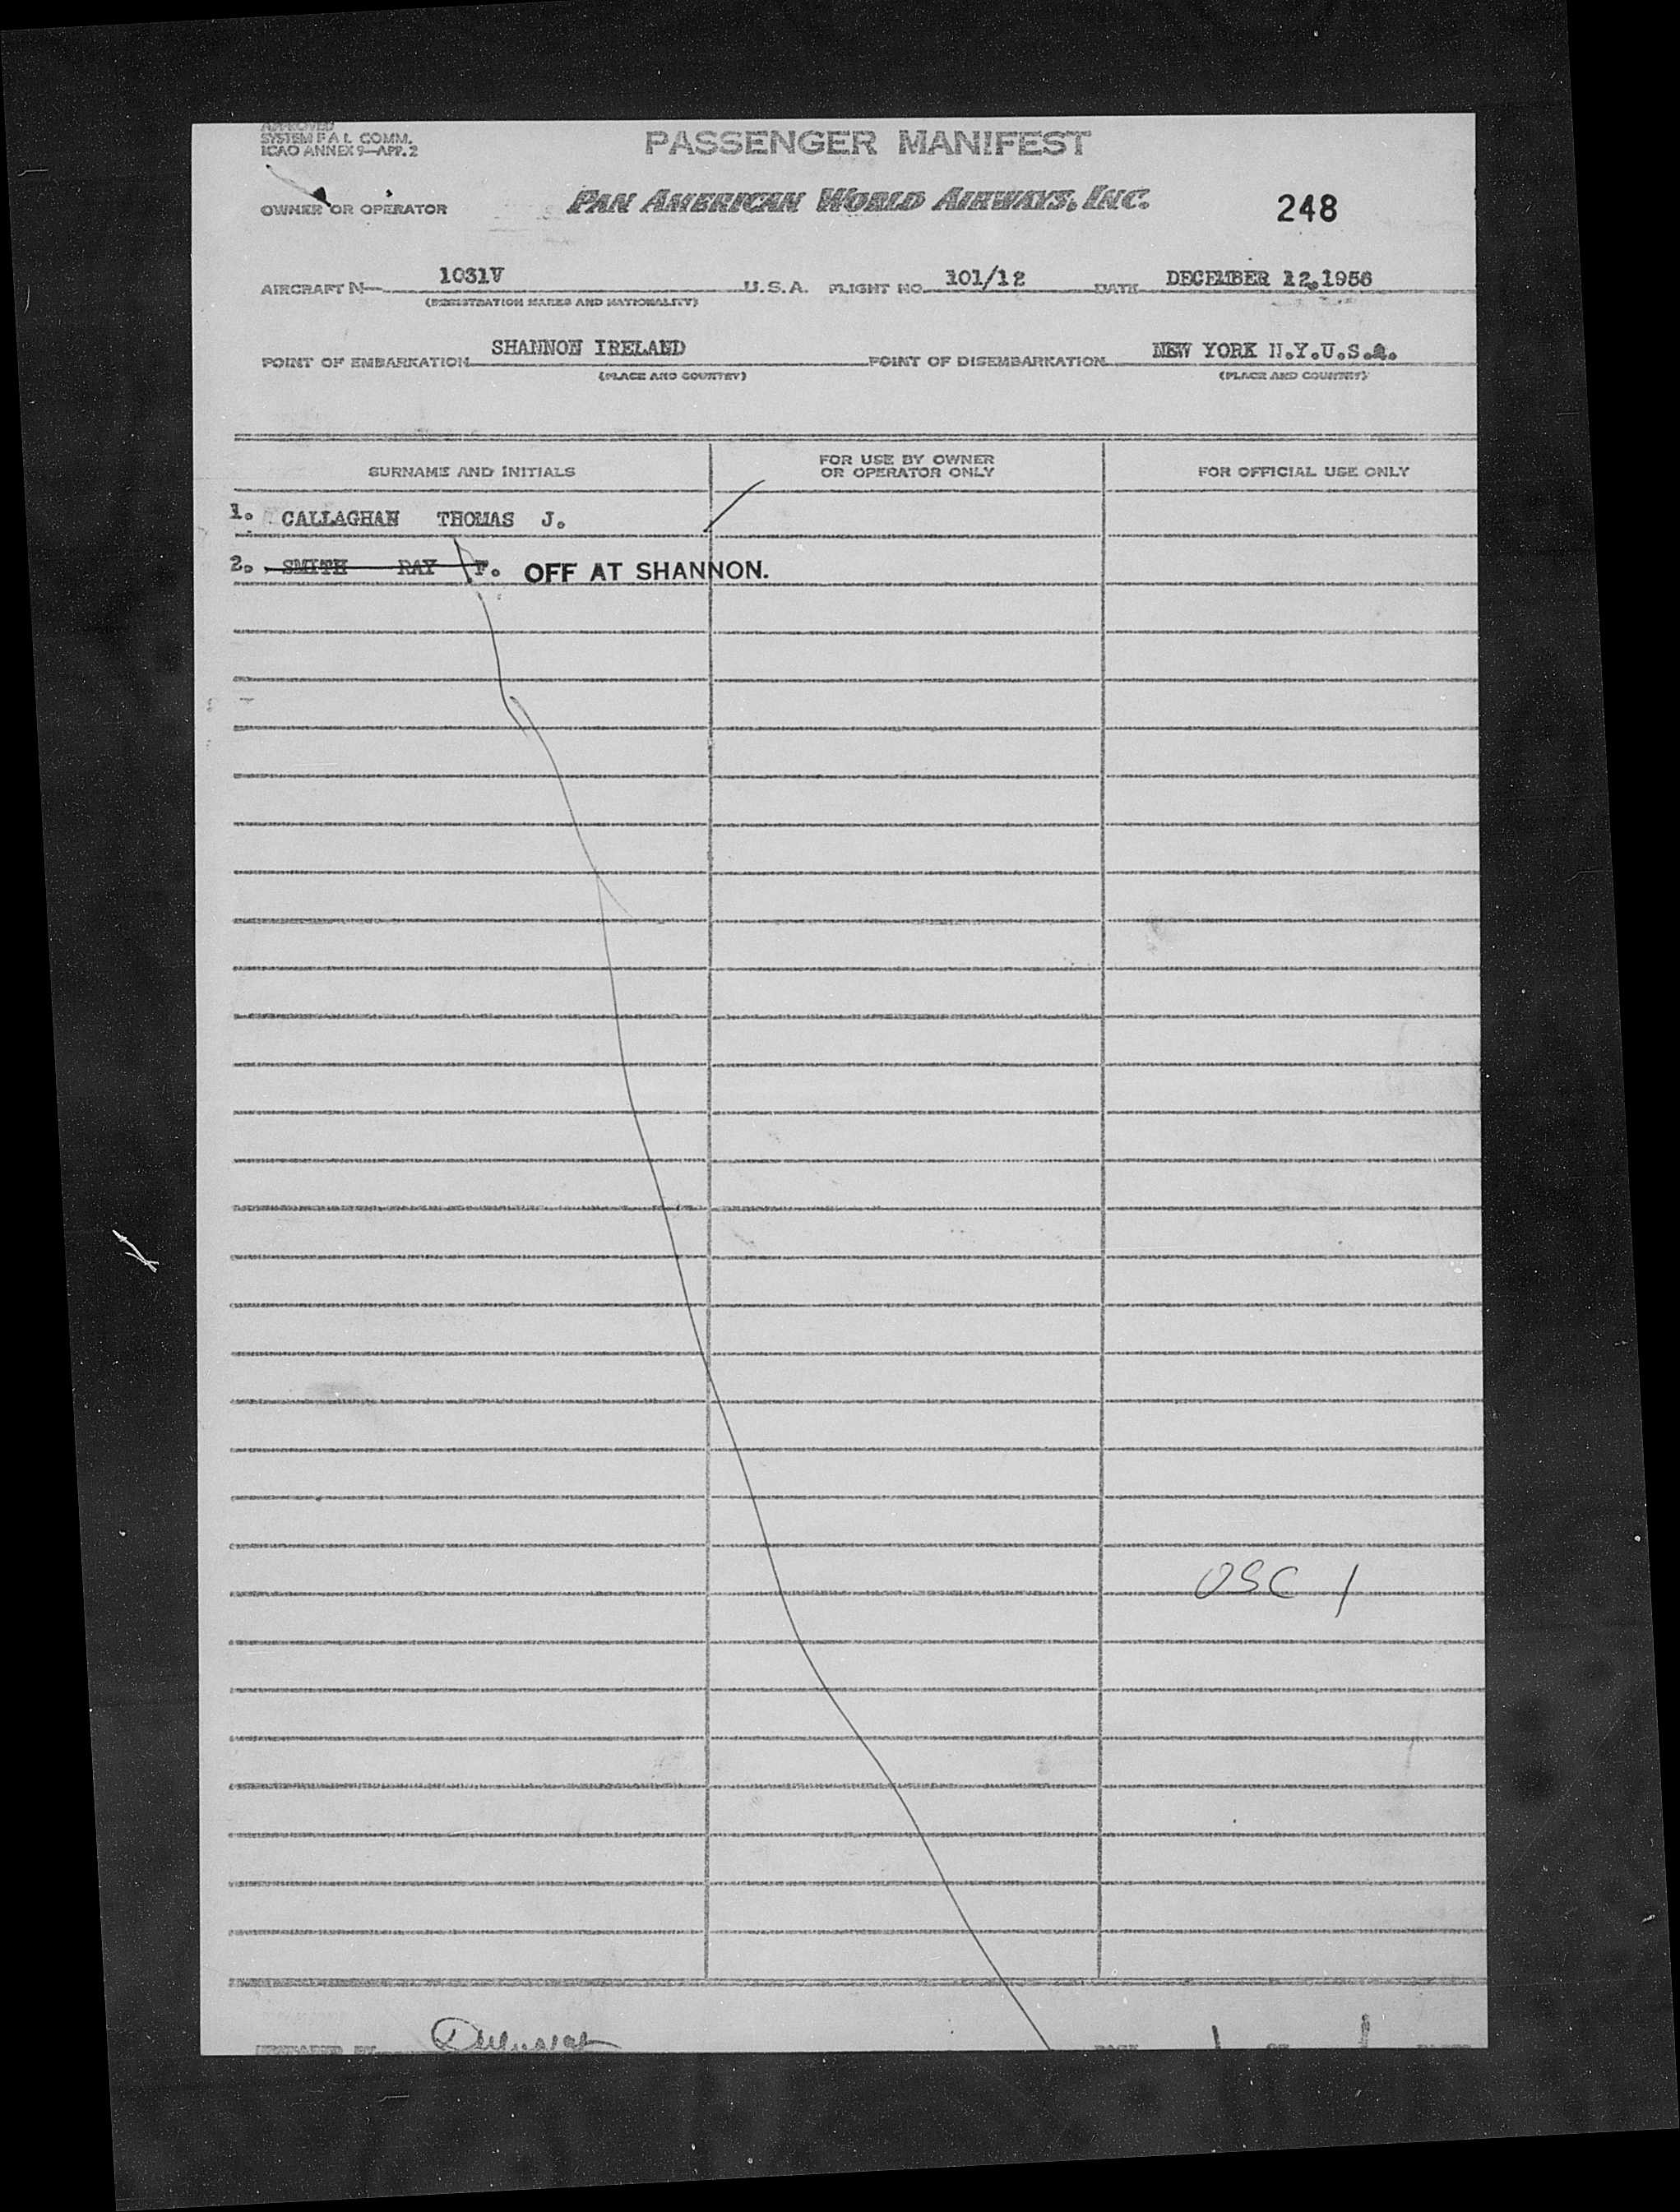 APPROVED
SYSTEM F A L COMM.
ICAO ANNEX 9—APP. 2
PASSENGER MANIFEST
OWNER OR OPERATOR PAN AMERICAN WORLD AIRWAYS, INC. 248
AIRCRAFT N— 1031V U.S.A. FLIGHT NO. 101/12 DATE DECEMBER 12.1956
(REGISTRATION MARKS AND NATIONALITY)
POINT OF EMBARKATION SHANNON IRELAND POINT OF DISEMBARKATION NEW YORK N.Y.U.S.A.
(PLACE AND COUNTRY) (PLACE AND COUNTRY)
SURNAME AND INITIALS FOR USE BY OWNER OR OPERATOR ONLY FOR OFFICIAL USE ONLY
1. CALLAGHAN THOMAS J.
2. SMITH RAY F. OFF AT SHANNON.
OSC 1
PREPARED BY PAGE 1 OF 1 PAGES